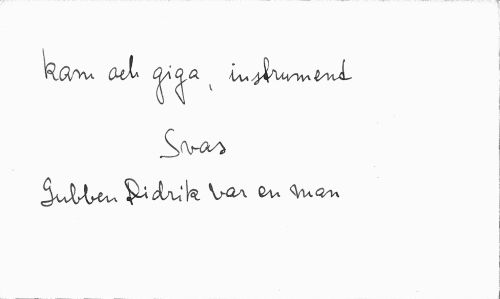 kam och giga, instrument
Svas
Gubben Didrik var en man